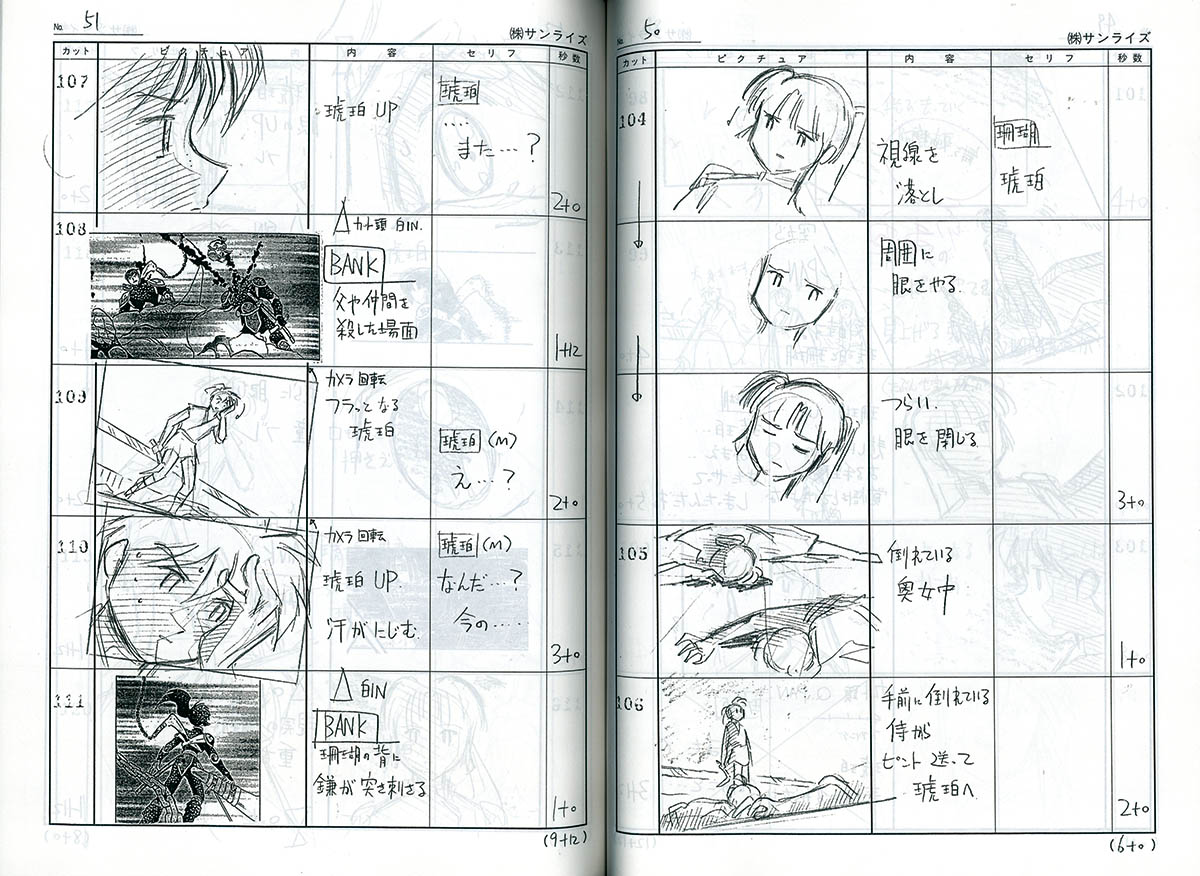 No. 50
㈱サンライズ
カット ピクチュア 内容 セリフ 秒数
104
視線を
落とし
珊瑚
琥珀
周囲に
眼をやる
つらい.
眼を閉じる
3+0
105
倒れている
奥女中
1+0
106
手前に倒れている
侍が
ピント送って
琥珀へ
2+0
(6+0)
No. 51
㈱サンライズ
カット ピクチュア 内容 セリフ 秒数
107
琥珀 UP
琥珀
‥‥
また…?
2+0
108
カット頭 白IN.
BANK
父や仲間を
殺した場面
1+12
109
カメラ回転
フラッとなる
琥珀
琥珀(M)
え…?
2+0
110
カメラ回転
琥珀 UP.
汗がにじむ
琥珀(M)
なんだ…?
今の‥‥
3+0
111
白IN
BANK
珊瑚の背に
鎌が突き刺さる
1+0
(9+12)